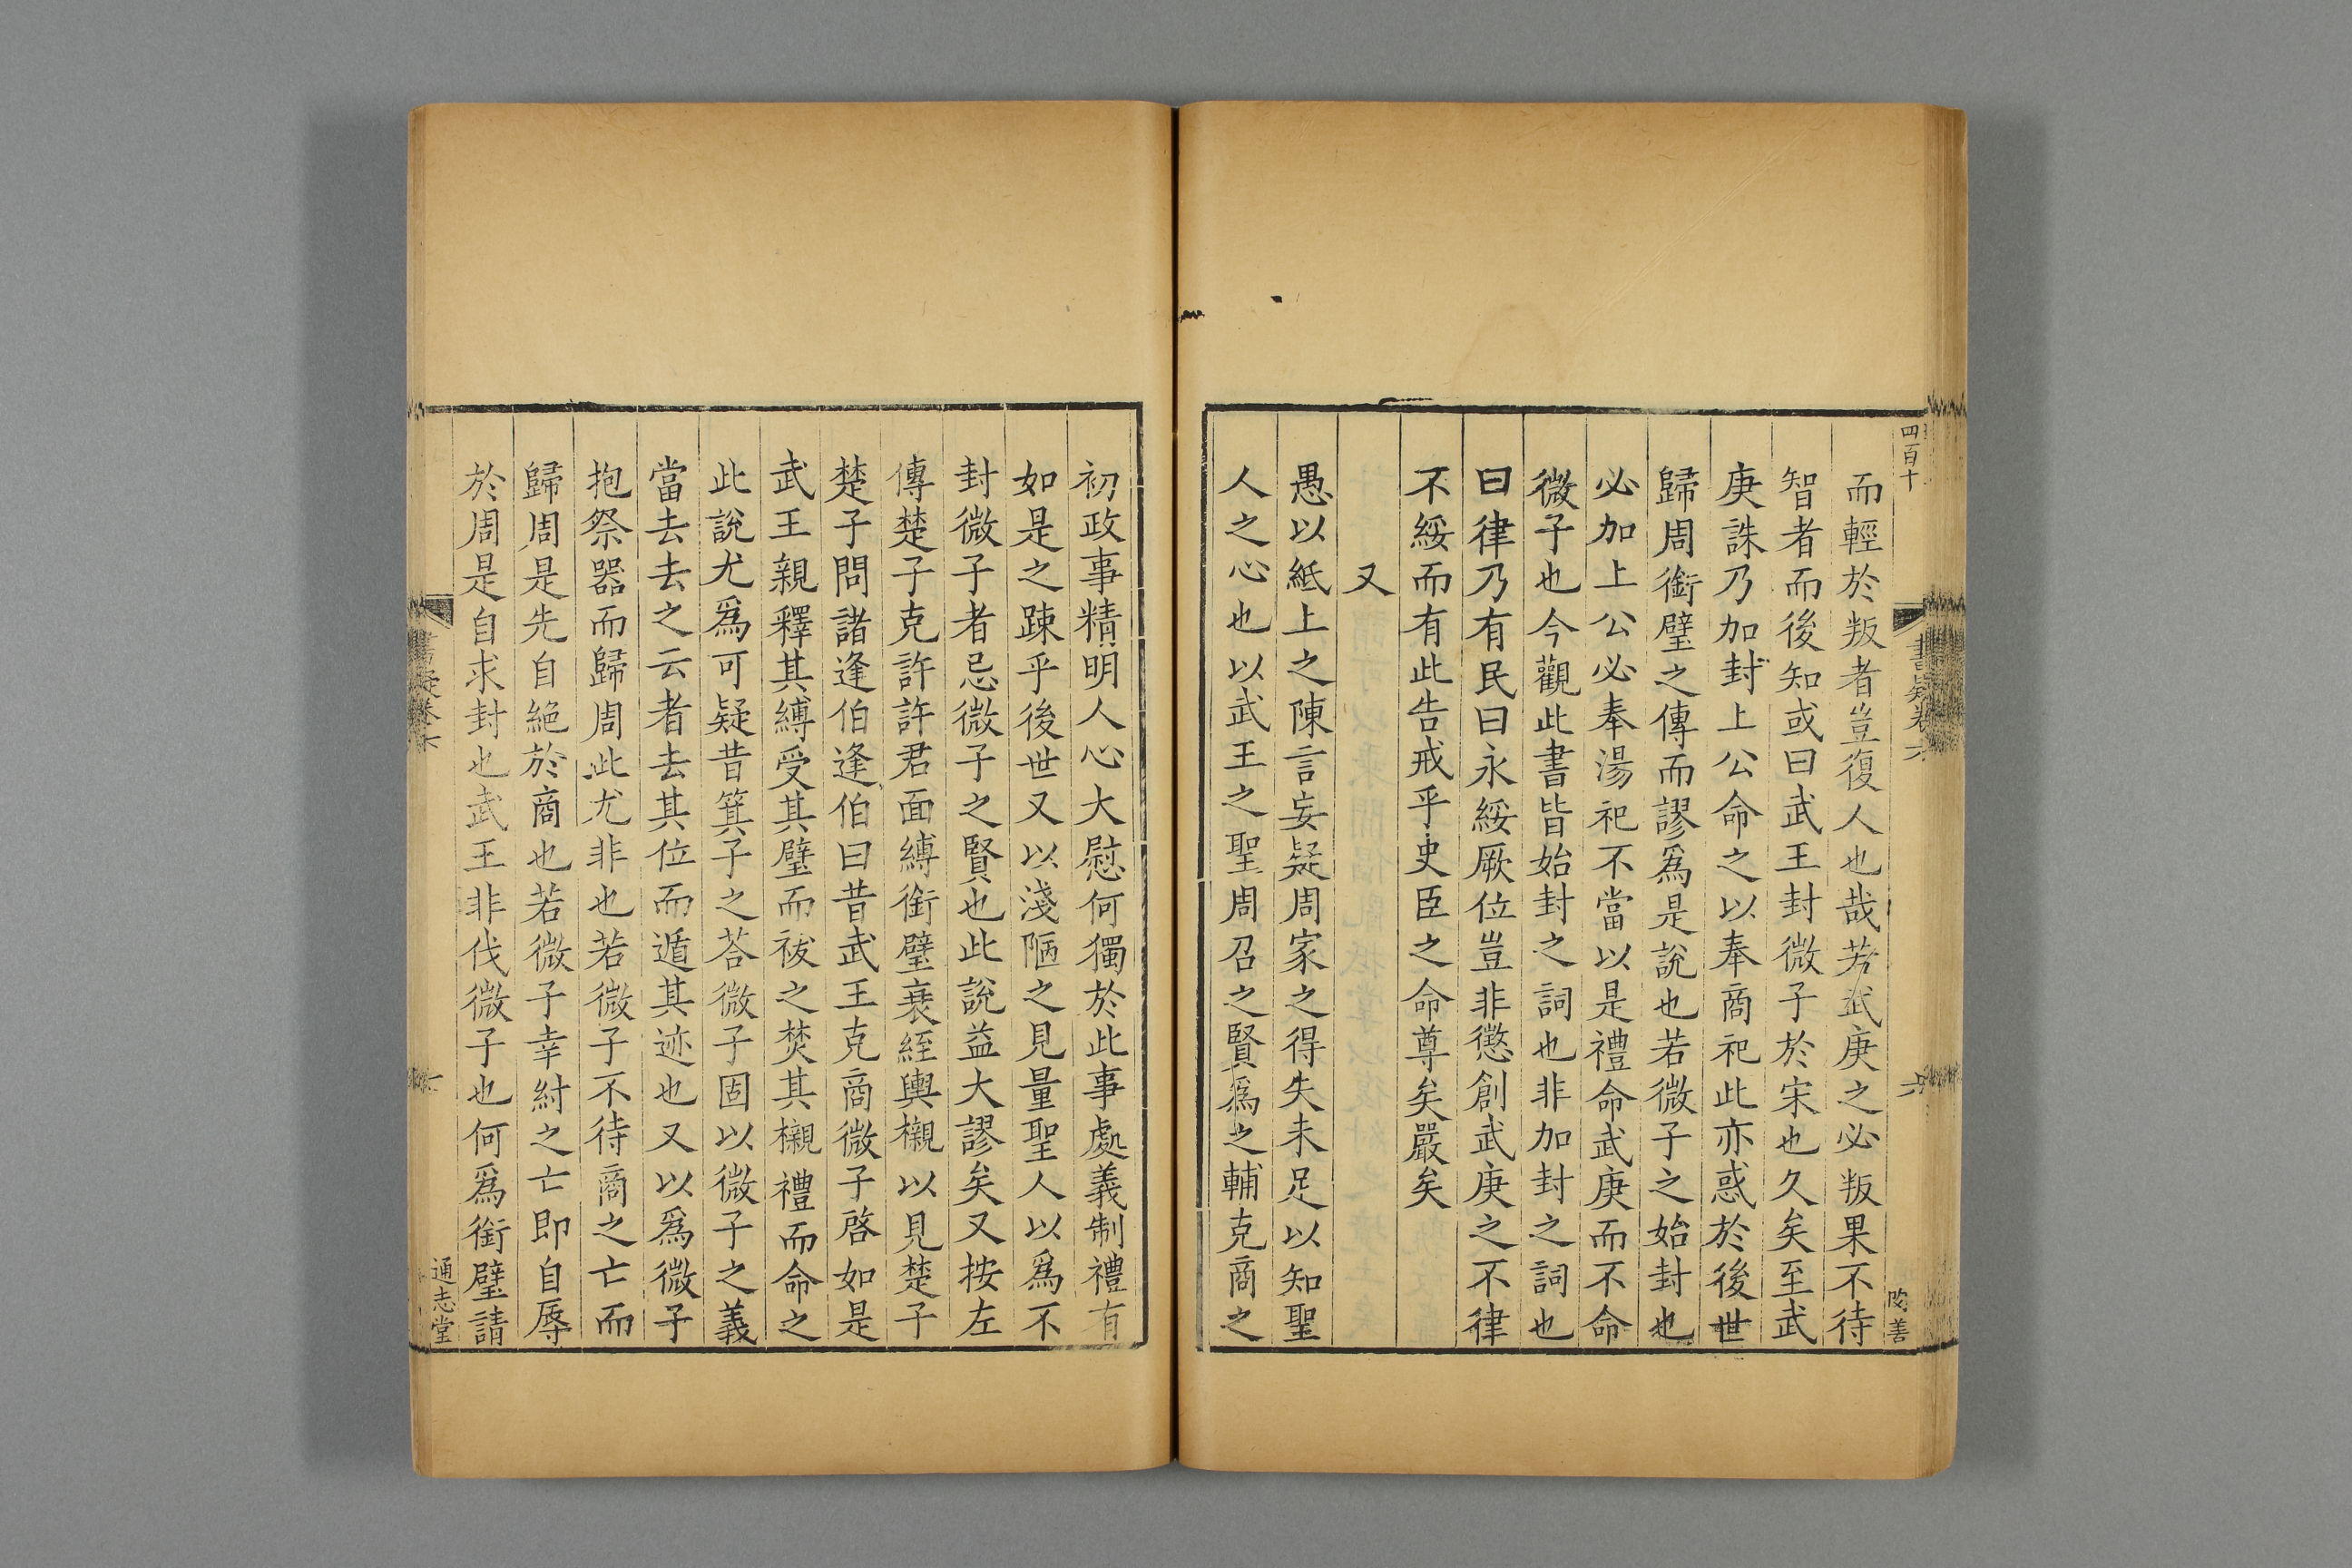 四百十
書疑卷六
六
而輕於叛者豈復人也哉若武庚之必叛果不待
智者而後知或曰武王封微子於宋也久矣至武
庚誅乃加封上公命之以奉商祀此亦惑於後世
歸周銜璧之傳而謬爲是說也若微子之始封也
必加上公必奉湯祀不當以是禮命武庚而不命
微子也今觀此書皆始封之詞也非加封之詞也
曰律乃有民曰永綏厥位豈非懲創武庚之不律
不綏而有此告戒乎史臣之命尊矣嚴矣
又
愚以紙上之陳言妄疑周家之得失未足以知聖
人之心也以武王之聖周召之賢爲之輔克商之
初政事精明人心大慰何獨於此事處義制禮有
如是之踈乎後世又以淺陋之見量聖人以爲不
封微子者忌微子之賢也此說益大謬矣又按左
傳楚子克許許君面縛銜璧衰絰輿櫬以見楚子
楚子問諸逢伯逢伯曰昔武王克商微子啓如是
武王親釋其縛受其璧而祓之焚其櫬禮而命之
此說尤爲可疑昔箕子之荅微子固以微子之義
當去去之云者去其位而遁其迹也又以爲微子
抱祭器而歸周此尤非也若微子不待商之亡而
歸周是先自絕於商也若微子幸紂之亡即自辱
於周是自求封也武王非伐微子也何爲銜璧請
通志堂